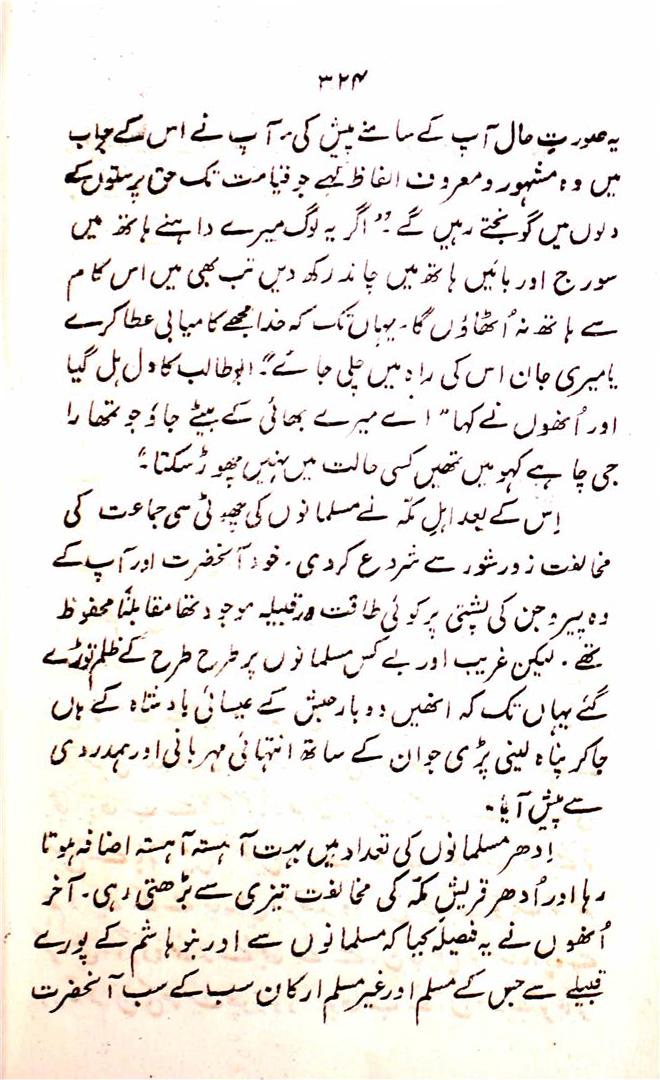 ۳۲۴
یہ صورتِ حال آپ کے سامنے پیش کی۔ آپ نے اس کے جواب
میں وہ مشہور و معروف الفاظ کہے جو قیامت تک حق پرستوں کے
دلوں میں گونجتے رہیں گے۔ "اگر یہ لوگ میرے داہنے ہاتھ میں
سورج اور بائیں ہاتھ میں چاند رکھ دیں تب بھی میں اس کام
سے ہاتھ نہ اُٹھاؤں گا۔ یہاں تک کہ خدا مجھے کامیابی عطا کرے
یا میری جان اس کی راہ میں چلی جائے"۔ ابوطالب کا دل ہل گیا
اور اُنھوں نے کہا "اے میرے بھائی کے بیٹے جاؤ جو تمھارا
جی چاہے کہو میں تمھیں کسی حالت میں نہیں چھوڑ سکتا۔"
اِس کے بعد اہلِ مکّہ نے مسلمانوں کی چھوٹی سی جماعت کی
مخالفت زور شور سے شروع کردی۔ خود آنحضرت اور آپ کے
وہ پیرو جن کی پشتی پر کوئی طاقت ور قبیلہ موجود تھا مقابلتاً محفوظ
تھے۔ لیکن غریب اور بے کس مسلمانوں پر طرح طرح کے ظلم توڑے
گئے یہاں تک کہ انھیں دو بار حبش کے عیسائی بادشاہ کے ہاں
جاکر پناہ لینی پڑی جو ان کے ساتھ انتہائی مہربانی اور ہمدردی
سے پیش آیا۔
اِدھر مسلمانوں کی تعداد میں بہت آہستہ آہستہ اضافہ ہوتا
رہا اور اُدھر قریشِ مکّہ کی مخالفت تیزی سے بڑھتی رہی۔ آخر
اُنھوں نے یہ فیصلہ کیا کہ مسلمانوں سے اور بنو ہاشم کے پورے
قبیلے سے جس کے مسلم اور غیر مسلم ارکان سب کے سب آنحضرت